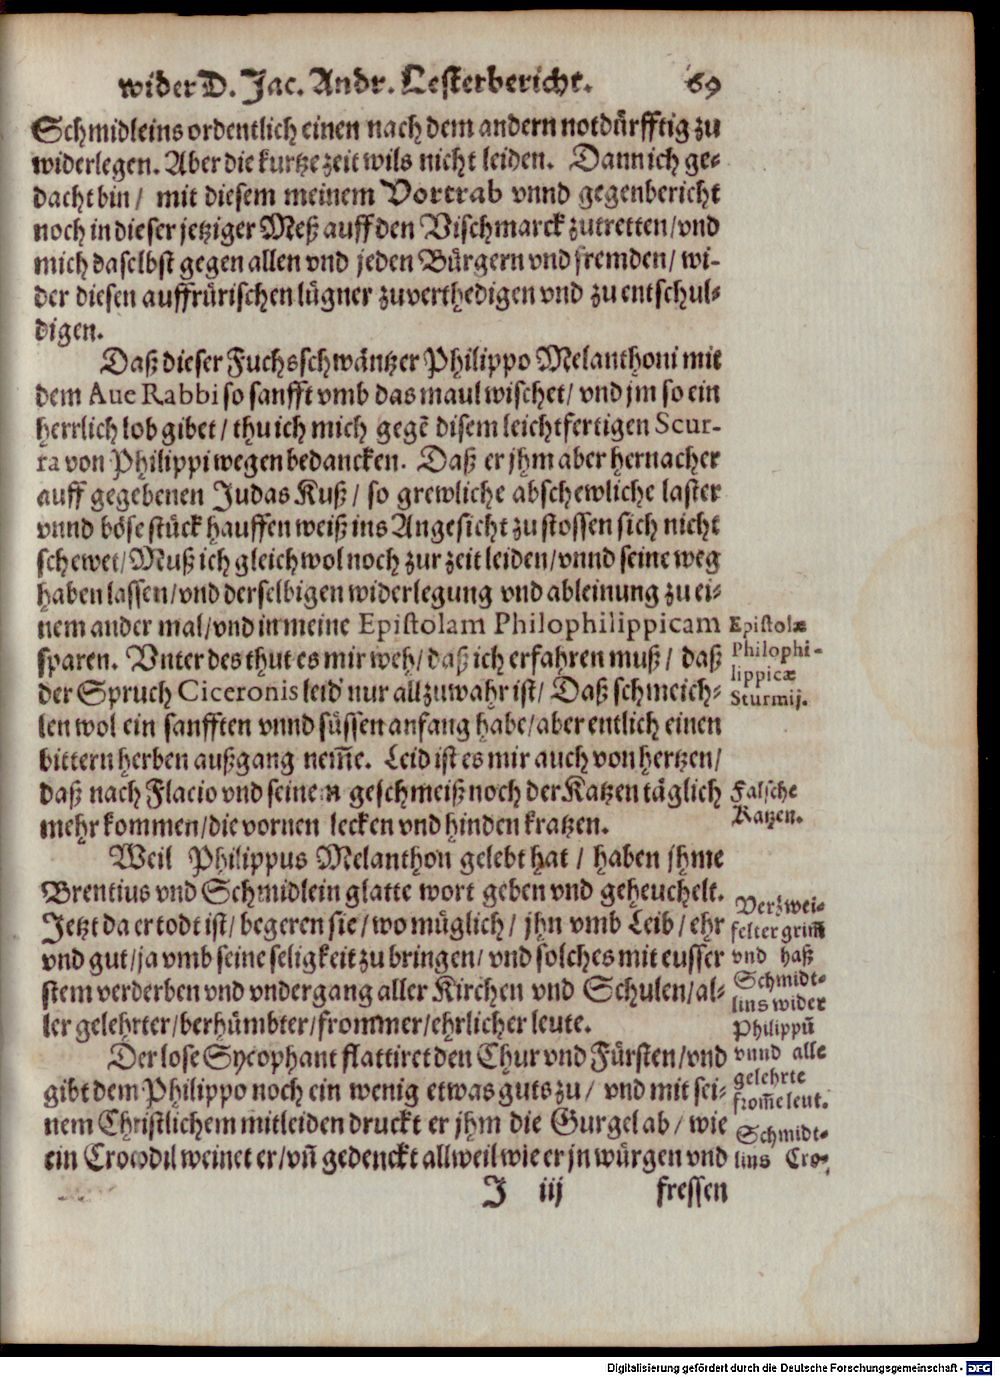 wider D. Jac. Andr. Lesterbericht. 69
Schmidleins ordentlich einen nach dem andern notdürfftig zu
widerlegen. Aber die kurtze zeit wils nicht leiden. Dann ich ge-
dacht bin/ mit diesem meinem Vortrab vnnd gegenbericht
noch in dieser jetziger Meß auff den Vischmarck zutretten/ vnd
mich daselbst gegen allen vnd jeden Bürgern vnd fremden/ wi-
der diesen auffrürischen lügner zuverthedigen vnd zu entschul-
digen.
Daß dieser Fuchsschwäntzer Philippo Melanthoni mit
dem Aue Rabbi so sanfft vmb das maul wischet/ vnd jm so ein
herrlich lob gibet/ thu ich mich gegẽ disem leichtfertigen Scur-
ra von Philippi wegen bedancken. Daß er jhm aber hernacher
auff gegebenen Judas Kuß/ so grewliche abschewliche laster
vnnd böse stück hauffen weiß ins Angesicht zu stossen sich nicht
schewet/ Muß ich gleichwol noch zur zeit leiden/ vnnd seine weg
haben lassen/ vnd derselbigen widerlegung vnd ableinung zu ei-
nem ander mal/ vnd in meine Epistolam Philophilippicam
sparen. Vnter des thut es mir weh/ daß ich erfahren muß/ daß
der Spruch Ciceronis leid nur allzuwahr ist/ Daß schmeich-
len wol ein sanfften vnnd süssen anfang habe/ aber entlich einen
bittern herben außgang nem̃e. Leid ist es mir auch von hertzen/
daß nach Flacio vnd seinem geschmeiß noch der Katzen täglich
mehr kommen/ die vornen lecken vnd hinden kratzen.
Weil Philippus Melanthon gelebt hat/ haben jhme
Brentius vnd Schmidlein glatte wort geben vnd geheuchelt.
Jetzt da er todt ist/ begeren sie/ wo müglich/ jhn vmb Leib/ ehr
vnd gut/ ja vmb seine seligkeit zu bringen/ vnd solches mit eusser
stem verderben vnd vndergang aller Kirchen vnd Schulen/ al-
ler gelehrter/ berhümbter/ frommer/ ehrlicher leute.
Der lose Sycophant flattiret den Chur vnd Fürsten/ vnd
gibt dem Philippo noch ein wenig etwas guts zu/ vnd mit sei-
nem Christlichem mitleiden druckt er jhm die Gurgel ab/ wie
ein Crocodil weinet er/ vñ gedenckt allweil wie er jn würgen vnd
J iij fressen
Epistolæ
Philophi-
lippicæ
Sturmij.
Falsche
Katzen.
Verzwei-
felter grim̃
vnd haß
Schmidt-
lins wider
Philippũ
vnnd alle
gelehrte
from̃e leut.
Schmidt-
lins Cro-
Digitalisierung gefördert durch die Deutsche Forschungsgemeinschaft - DFG